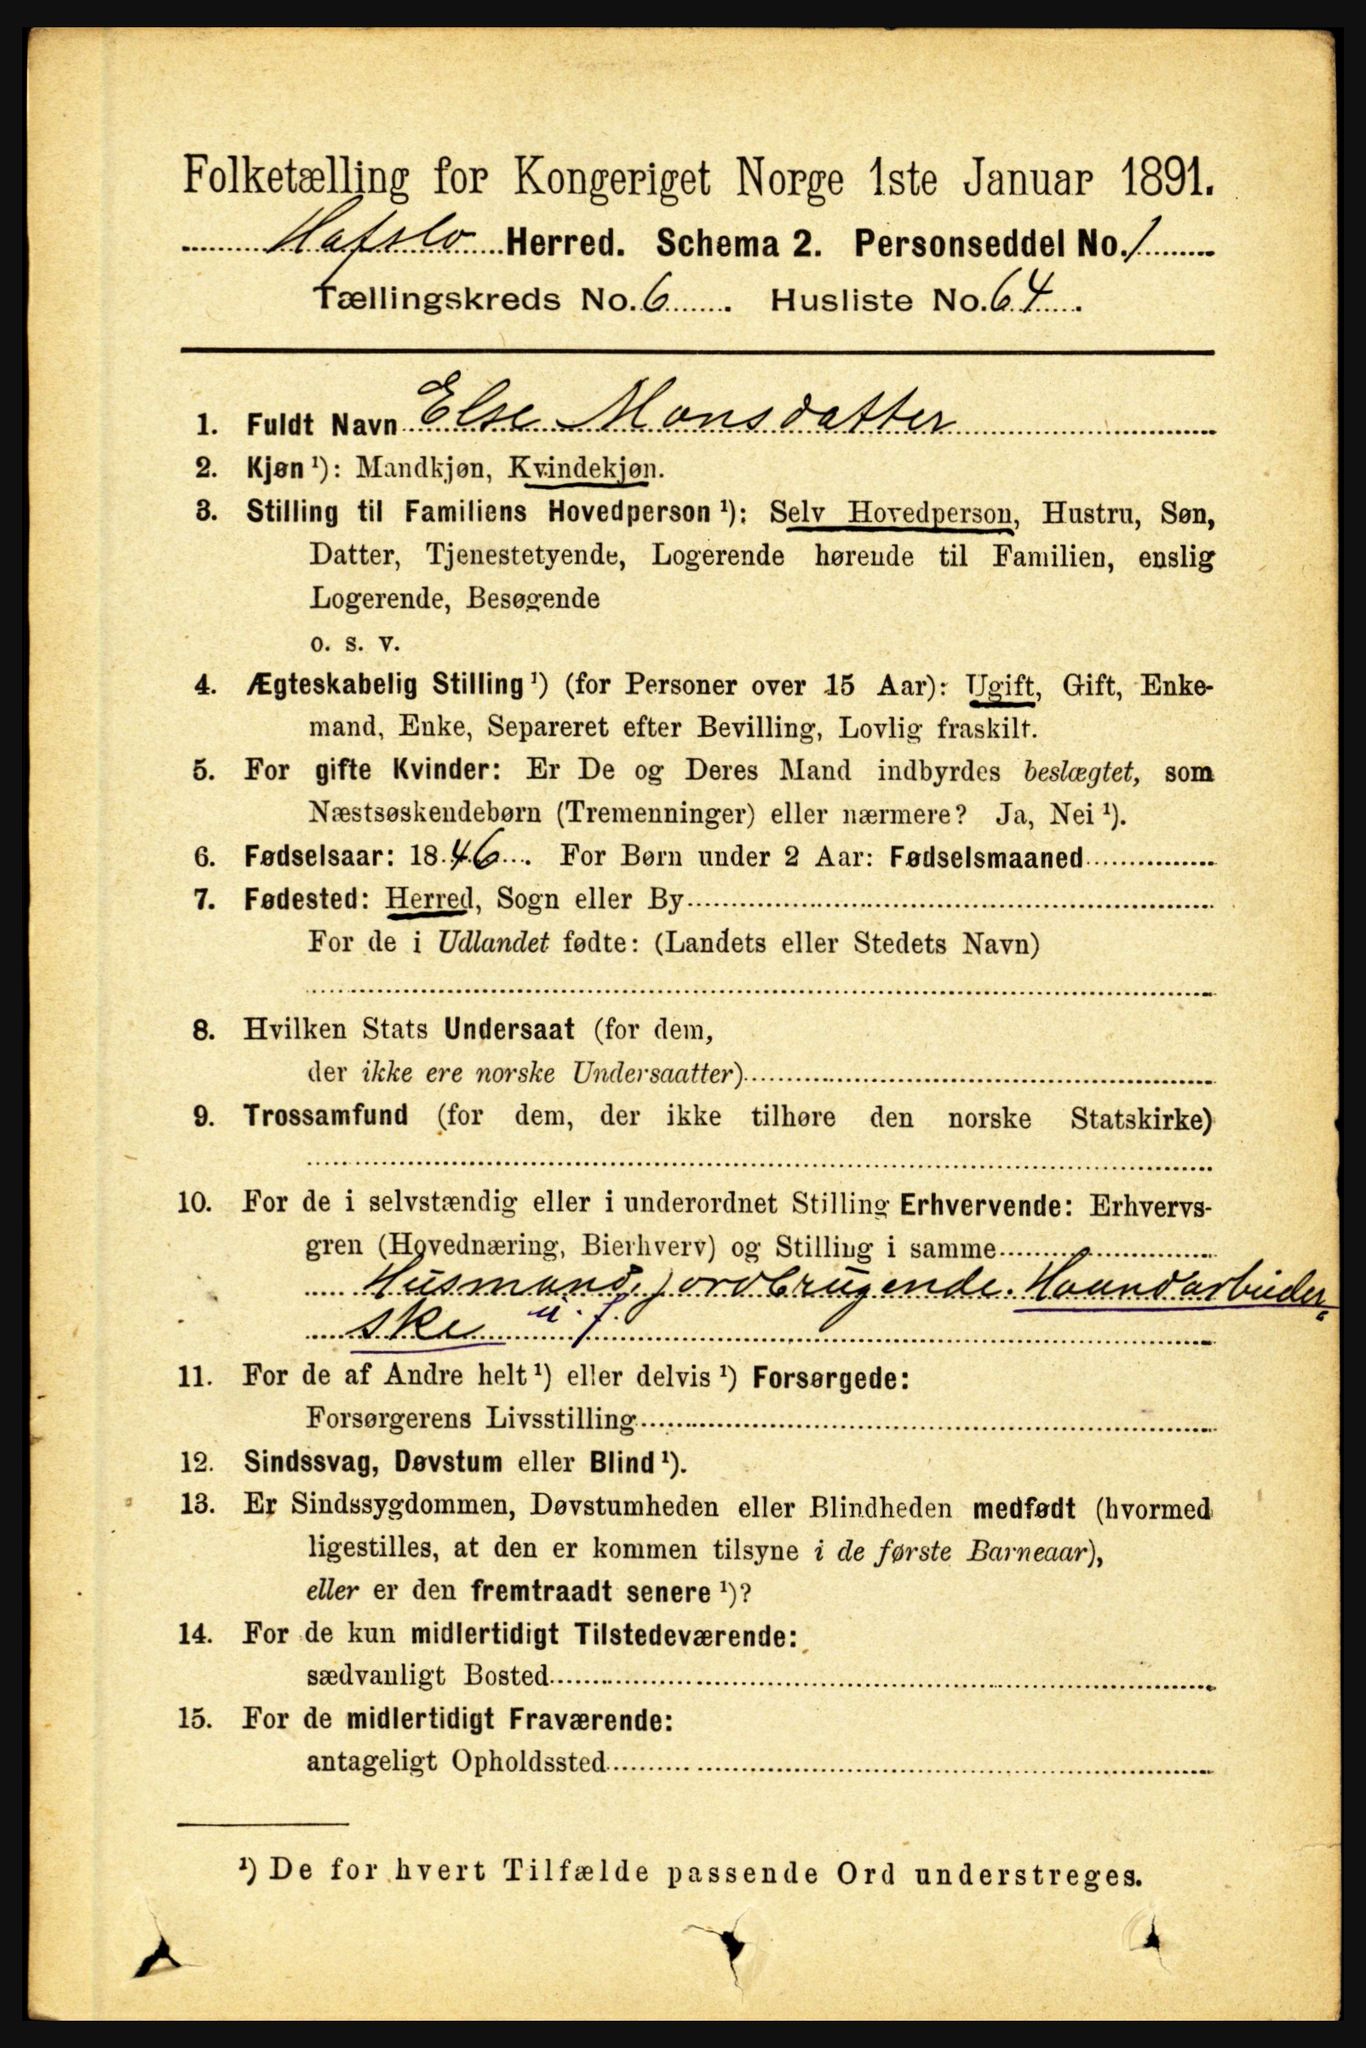 Folketælling for Kongeriget Norge 1ste Januar 1891.
Hafslo Herred. Schema 2. Personseddel No. 1
Tællingskreds No. 6. Husliste No. 64.
1. Fuldt Navn Else Monsdatter
2. Kjøn ¹): Mandkjøn, Kvindekjøn.
3. Stilling til Familiens Hovedperson ¹): Selv Hovedperson, Hustru, Søn,
Datter, Tjenestetyende, Logerende hørende til Familien, enslig
Logerende, Besøgende
o. s. v.
4. Ægteskabelig Stilling ¹) (for Personer over 15 Aar): Ugift, Gift, Enke-
mand, Enke, Separeret efter Bevilling, Lovlig fraskilt.
5. For gifte Kvinder: Er De og Deres Mand indbyrdes beslægtet, som
Næstsøskendebørn (Tremenninger) eller nærmere? Ja, Nei ¹).
6. Fødselsaar: 1846. For Børn under 2 Aar: Fødselsmaaned
7. Fødested: Herred, Sogn eller By
For de i Udlandet fødte: (Landets eller Stedets Navn)
8. Hvilken Stats Undersaat (for dem,
der ikke ere norske Undersaatter)
9. Trossamfund (for dem, der ikke tilhøre den norske Statskirke)
10. For de i selvstændig eller i underordnet Stilling Erhvervende: Erhvervs-
gren (Hovednæring, Bierhverv) og Stilling i samme
Husmand, jordbrugende. Haandarbieder-
ske
11. For de af Andre helt ¹) eller delvis ¹) Forsørgede:
Forsørgerens Livsstilling
12. Sindssvag, Døvstum eller Blind ¹).
13. Er Sindssygdommen, Døvstumheden eller Blindheden medfødt (hvormed
ligestilles, at den er kommen tilsyne i de første Barneaar),
eller er den fremtraadt senere ¹)?
14. For de kun midlertidigt Tilstedeværende:
sædvanligt Bosted
15. For de midlertidigt Fraværende:
antageligt Opholdssted
¹) De for hvert Tilfælde passende Ord understreges.